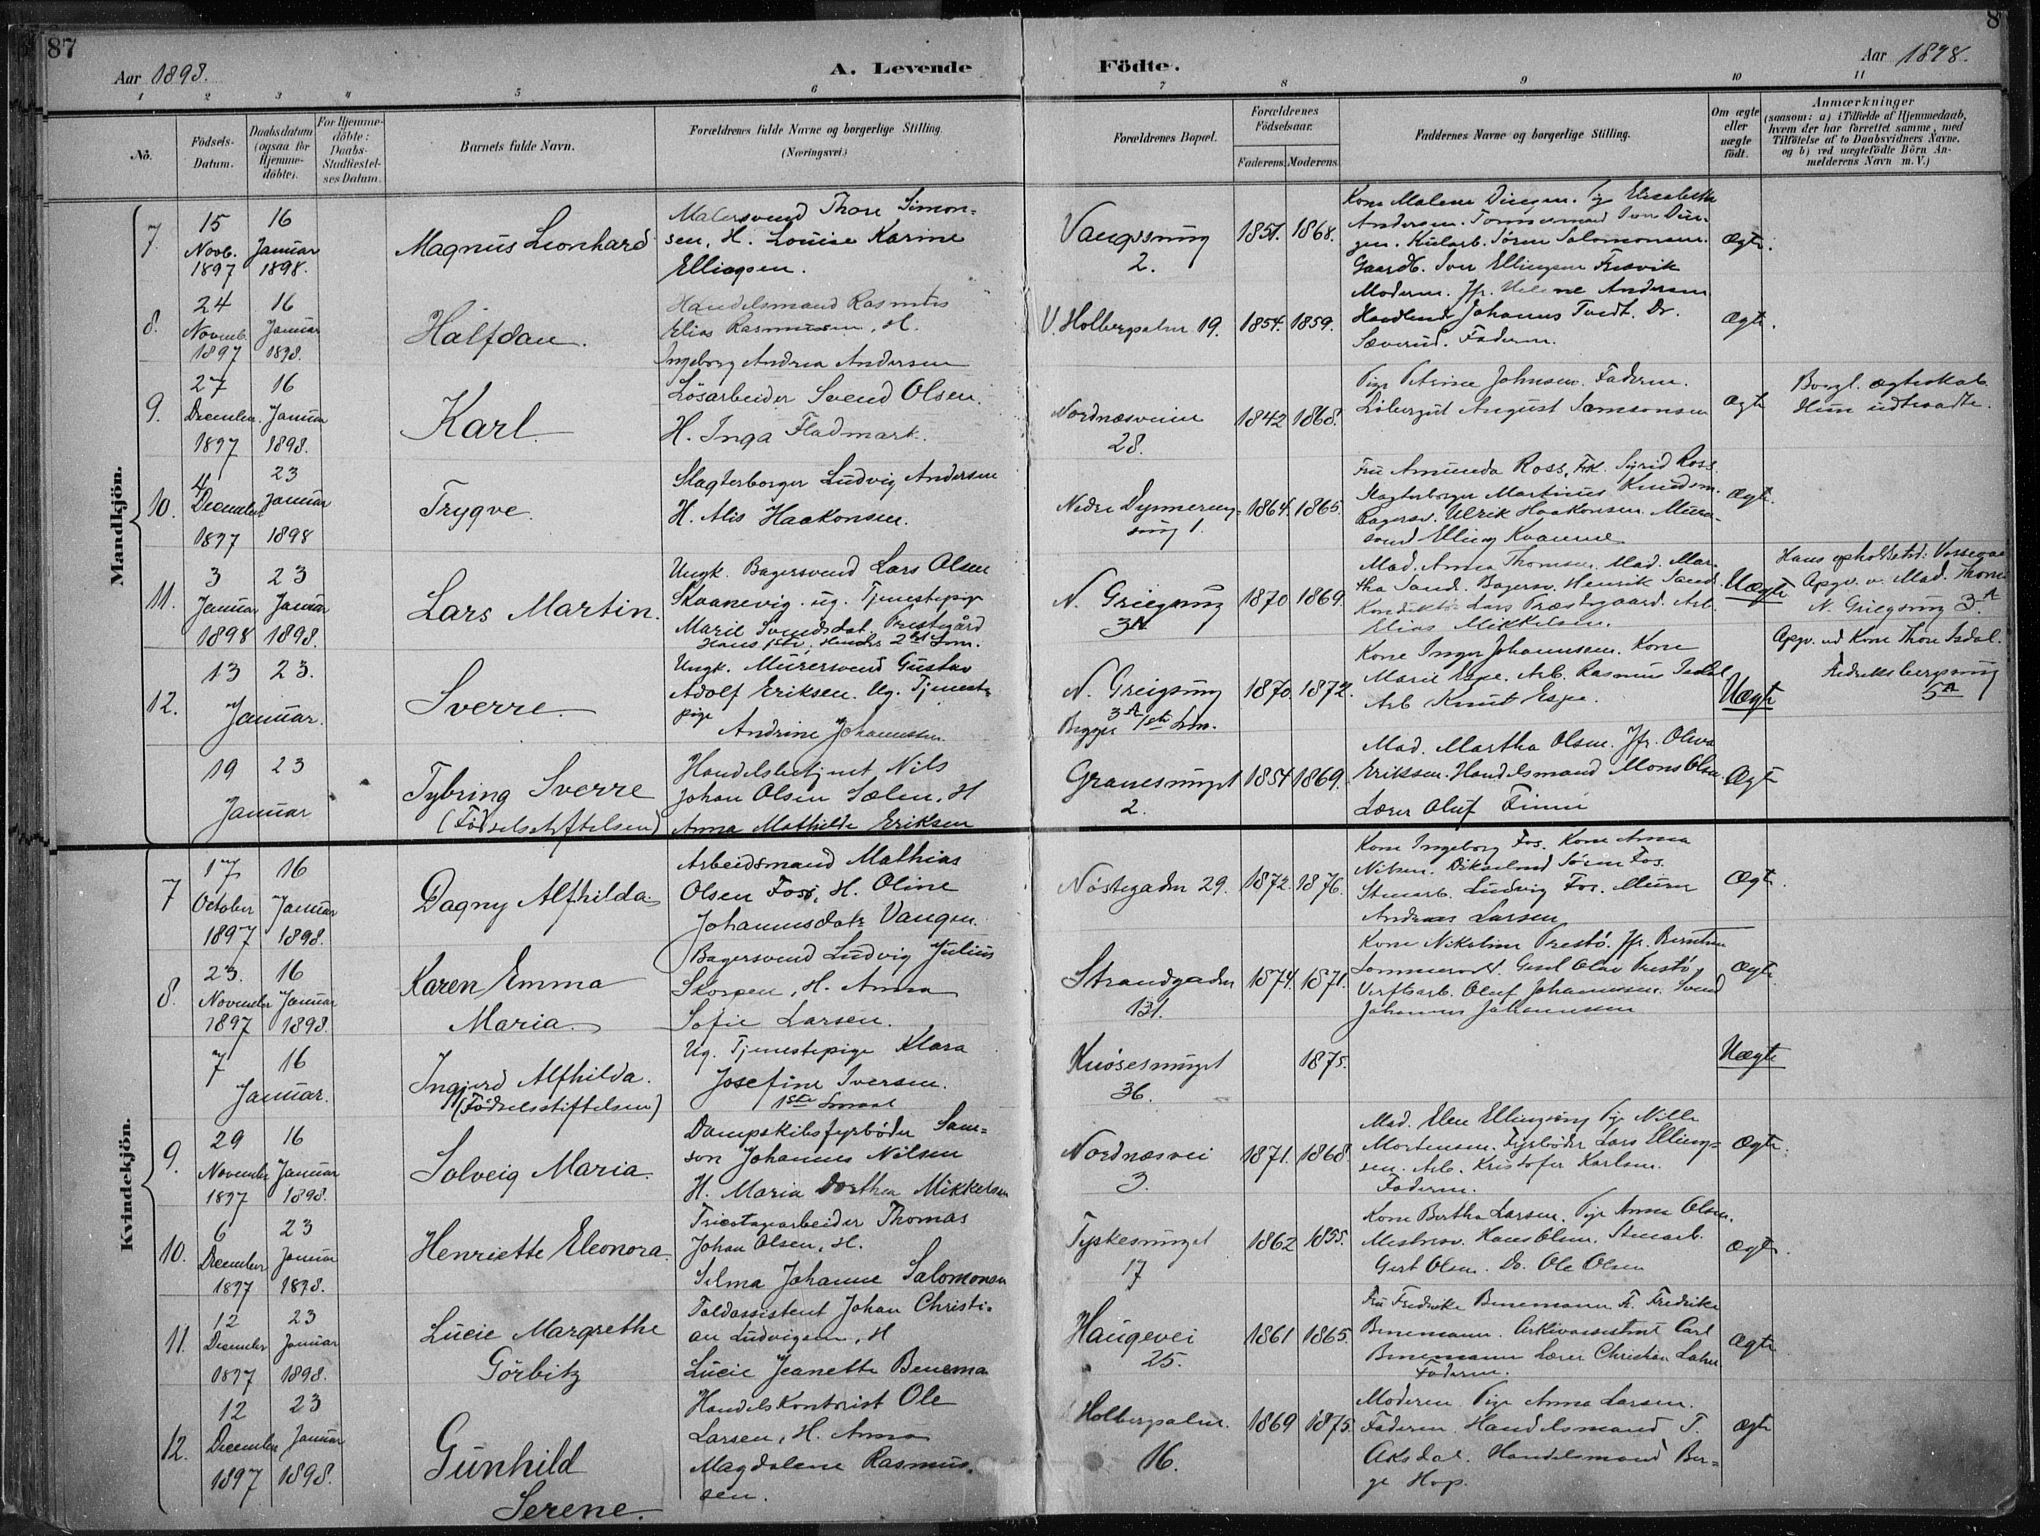 87
8
Aar 1898.
A. Levende
Födte.
Aar 1898.
1 2 3 4 5 6 7 8 9 10 11
No.
Födsels-Datum.
Daabsdatum (ogsaa for Hjemmedöbte).
For Hjemmedöbte: Daabs-Stadfæstelses Datum.
Barnets fulde Navn.
Forældrenes fulde Navne og borgerlige Stilling.
(Næringsvei.)
Forældrenes Bopæl.
Forældrenes Födselsaar.
Faderens. Moderens.
Faddernes Navne og borgerlige Stilling.
Om ægte eller uægte födt.
Anmærkninger
(saasom: a) i Tilfælde af Hjemmedaab, hvem der har forrettet samme, med Tilföielse af to Daabsvidners Navne, og b) ved uægtefödte Börn Anmelderens Navn m. V.)
Mandkjön.
7. 15 Novb. 1897 16 Januar 1898. Magnus Leonhard
Malersvend Thore Simonsen, H. Louise Karine Ellingsen.
Vangssmug 2. 1868.
Kone Malene
Andersen. Tømmermand Iver
Søren Salomonsen.
Gaardb. Iver Ellingsen Fresvik
Ægte.
8. 24 Novemb. 1897 16 Januar 1898. Halfdan.
Handelsmand Rasmus Elias Rasmussen, H. Ingeborg Andrea Andersen
V. Holbergsalm 19. 1854. 1859.
Moderen. Jfr. Helene Andersen
Handlende Johannes Tvedt. Dr.
Sæverud. Faderen.
Ægte.
9. 27 December. 1897 16 Januar 1898. Karl.
Løsarbeider Svend Olsen. H. Inga Fladmark.
Nordnæsveien 28. 1842 1868.
Pige Petrine Johnsen. Faderen.
Løbergut August Samsonsen
Ægte
Borgl. ægteskab. Hun udtraadte.
10. 4 December 1897 23 Januar 1898 Trygve.
Slagterborger Ludvig Andersen H. Alis Haakonsen.
Nedre 1. 1864. 1865.
Fru Amunda Ross, Frk. Sigrid Ross.
Slagterborger Martinus Knudsen.
Bagersv. Ulrik Haakonsen. Murersvend Elling Kvamme.
Ægte.
11. 3 Januar 1898 23 Januar 1898. Lars Martin.
Ungk. Bagersvend Lars Olsen
Skaanevig. ug. Tjenestepige
Marie Svendsdat. Prestegård
Hans 1ste, Hendes 2det Lem.
N. Griegsmug 3A 1870 1869.
Mad. Anna Thomsen. Mad. Martha Sand. Bagersv. Henrik Sand.
Konduktør Lars Præstegaard. Arb.
Elias Mikkelsen.
Uægte
Hans opholdsted: Vossevan
Opgv. v. Mad. Thomsen
N. Griegsmug 3A
12. 13 23. Januar. Sverre.
Ungk. Murersvend Gustav
Adolf Eriksen. Ug. Tjenestepige
Andrine Johannessen
N. Greigsmug 3A
1870 1872.
Kone Inger Johannesen. Kone
Marie Espe. Arb. Rasmus Isdal
Arb Knut Espe.
Uægte
Opgv. ved Kone Thore Isdal.
Fredriksbergsmug 5A
19 23 Januar Tybring Sverre
(Fødselsstiftelsen)
Handelsbetjent Nils
Johan Olsen Sælen, H
Anna Mathilde Eriksen
Granesmuget 2. 1854 1869.
Mad. Martha Olsen. Jfr. Oliva
Eriksen. Handelsmand Mons Olsen
Lærer Oluf Finne
Ægt
Kvindekjön.
7 17 October 1897 16 Januar 1898. Dagny Alfhilda.
Arbeidsmand Mathias
Olsen Foss, H. Oline
Johannesdatr Vangen.
Nøstegaden 29. 1872. 1876.
Kone Ingeborg Fos. Kone Anna
Nilsen. Søren Fos.
Stenarb. Ludvig Fos. Murer
Andreas Larsen
Ægt.
8. 23. November 1897 16 Januar 1898. Karen Emma Maria.
Bagersvend Ludvig Julius
Skorpen, H. Anna
Sofie Larsen.
Strandgaden 131. 1874. 1871.
Kone Nikoline Prestø. Jfr. Berntine
Olav Prestø,
Verftsarb. Oluf Johannessen. Svend
Johannes Johannessen
Ægte.
7 16 Januar. Ingjerd Alfhilda.
(Fødselsstiftelsen)
Ug. Tjenestepige Klara
Josefine Iversen.
1ste
Knøsesmuget 36. 1875.
Uægte
9. 29 November 1897 16 Januar 1898. Solveig Maria.
Dampskibsfyrbøder Samson Johannes Nilsen
H. Maria Dorthea Mikkelsen
Nordnæsvei 3. 1871. 1868.
Mad. Elen Ellingsen Pige Nille
Mortensen. Fyrbøder Lars Ellingsen. Arb. Kristofer Karlsen.
Faderen.
Ægte.
10. 6 December 1897 23 Januar 1898. Henriette Eleonora.
Tricotagearbeider Thomas
Johan Olsen, H.
Selma Johanne Salomonsen
Tydskesmuget 17 1862 1855.
Kone Bertha Larsen. Pige Anna Olsen.
Hans Olsen. Stenarb.
Gert Olsen. Do. Ole Olsen
Ægt.
11. 12 December 1897 23 Januar 1898. Lucie Margrethe Görbitz
Toldassistent Johan Christian Ludvigsen, H
Lucie Jeanette Benema
Haugevei 25. 1861 1865.
Fru Fredrikke Bennemann Fr. Fredrikke
Bennemann. Arkivassistent Carl
Bennemann Lærer Christian
Faderen.
Ægte.
12. 12 December 1897 23 Januar 1898. Gunhild Serene.
Handelskontorist Ole
Larsen, H. Anna
Magdalene Rasmussen.
Holbergsalm. 16. 1869 1875.
Moderen Pige Anna Larsen.
Faderen. Handelsmand T.
Aksdal. Handelsmand Berge Hop.
Ægte